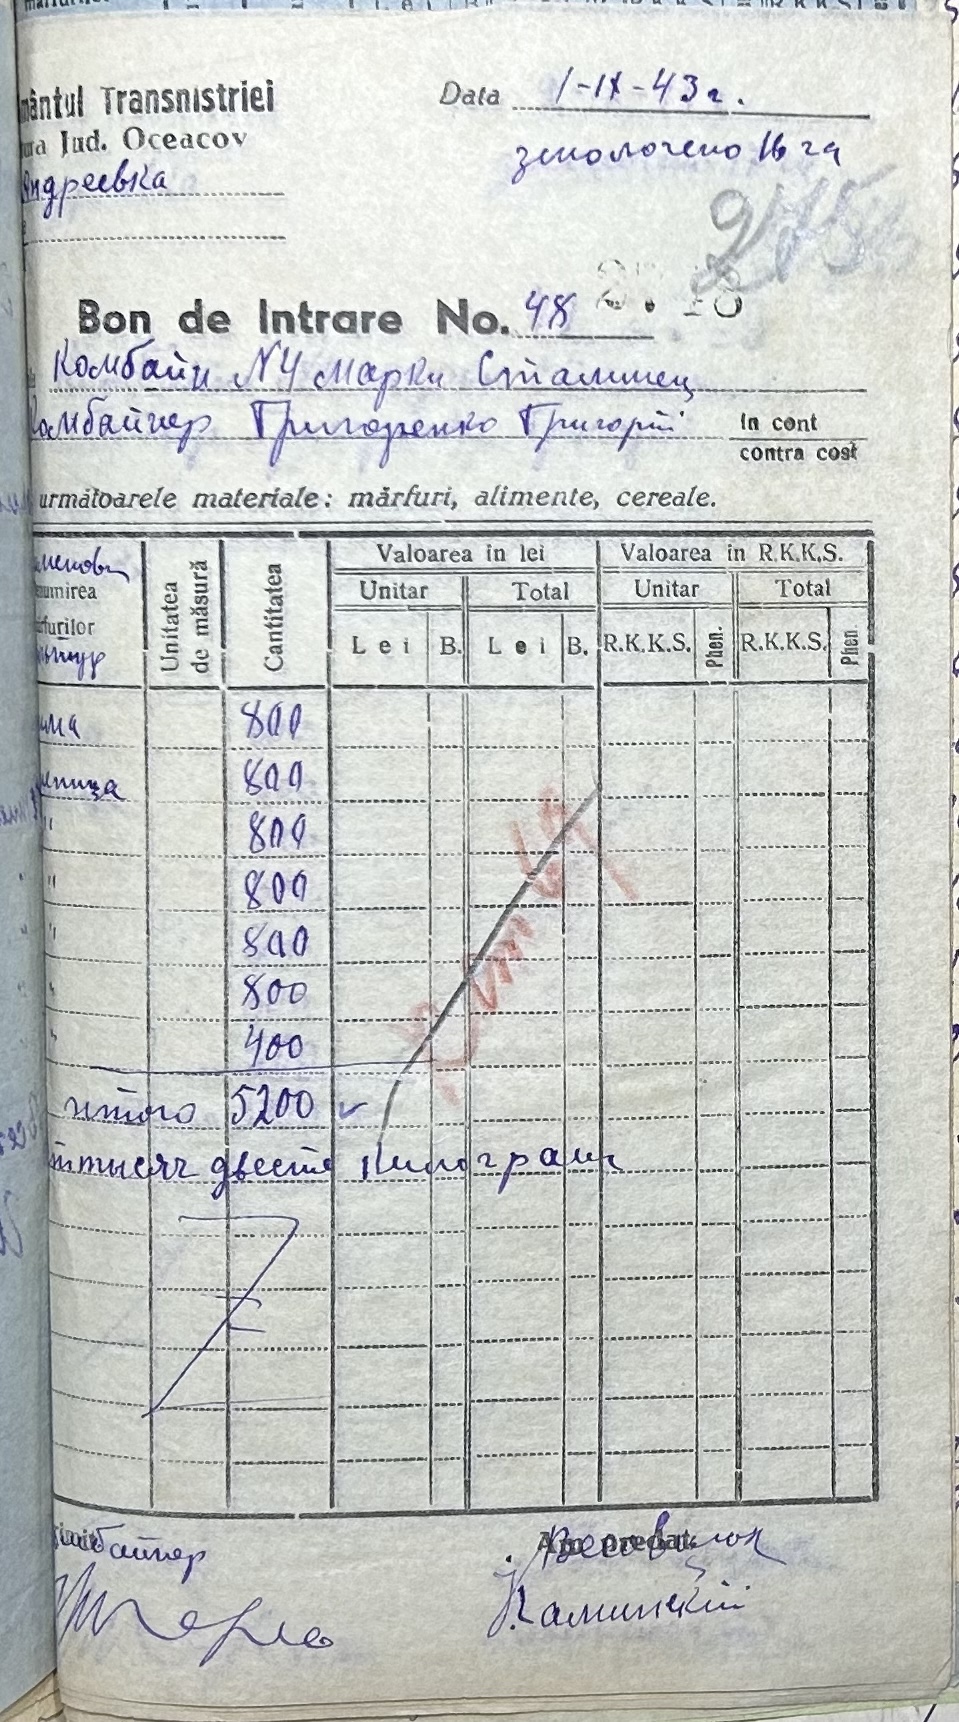 mântul Transnistriei
ura Jud. Oceacov
Андреевка
Data 1-IX-43 г.
змолочено 16 га
Bon de Intrare No. 48
Комбайн №4 марки Сталинец
Комбайнер Григоренко Григорій
In cont
contra cost
următoarele materiale: mărfuri, alimente, cereale.
umirea
rfurilor
Unitatea de măsură
Cantitatea
Valoarea in lei
Valoarea in R.K.K.S.
Unitar Total Unitar Total
Lei B. Lei B. R.K.K.S. Phen. R.K.K.S. Phen.
800
еница 800
" 800
" 800
" 800
" 800
" 400
итого 5200
тысяч двести килограм
байнер
Am predat.
Весовщик
Каминский